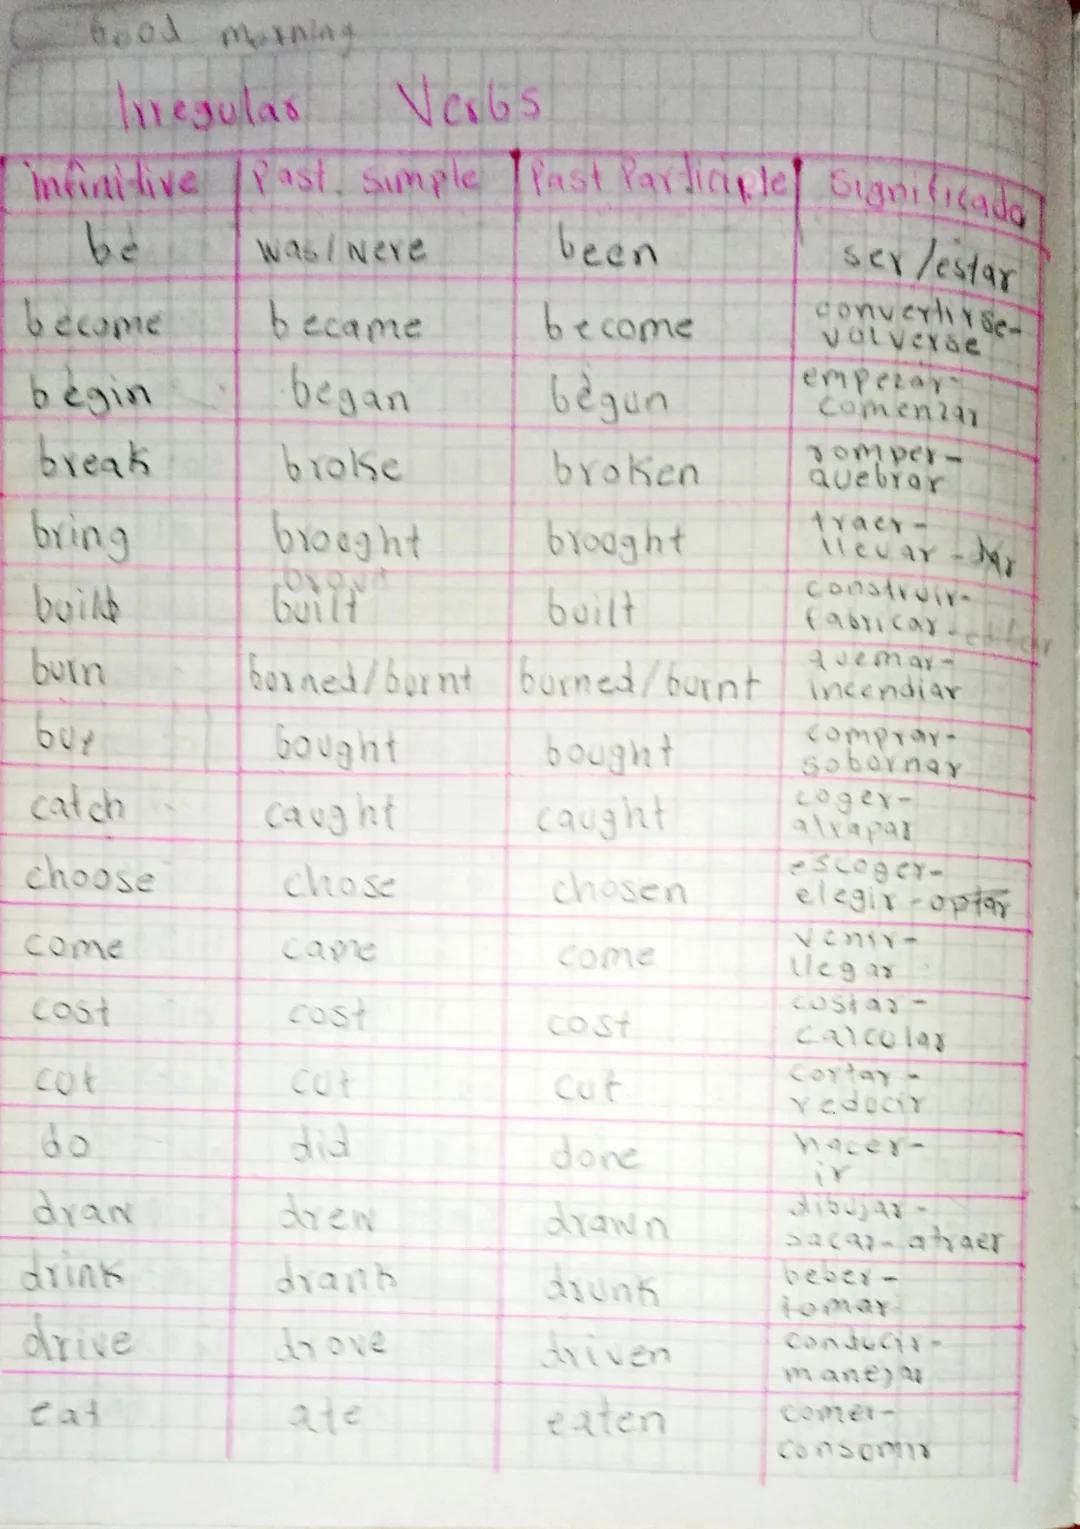 Good morning
Irregular Verbs
infinitive Past simple Past Participle Significado
be was/were been ser/estar
become became become convertirse-
volverse
begin began begun empezar-
comenzar
break broke broken romper-
quebrar
bring brought brought traer-
llevar - dar
build built built construir-
fabricar - editar
burn burned/burnt burned/burnt quemar-
incendiar
buy bought bought comprar-
sobornar
catch caught caught coger-
atrapar
choose chose chosen escoger-
elegir - optar
come came come venir-
llegar
cost cost cost costar-
calcular
cut cut cut cortar-
reducir
do did done hacer-
ir
draw drew drawn dibujar-
sacar- atraer
drink drank drunk beber-
tomar
drive drove driven conducir-
manejar
eat ate eaten comer-
consomir